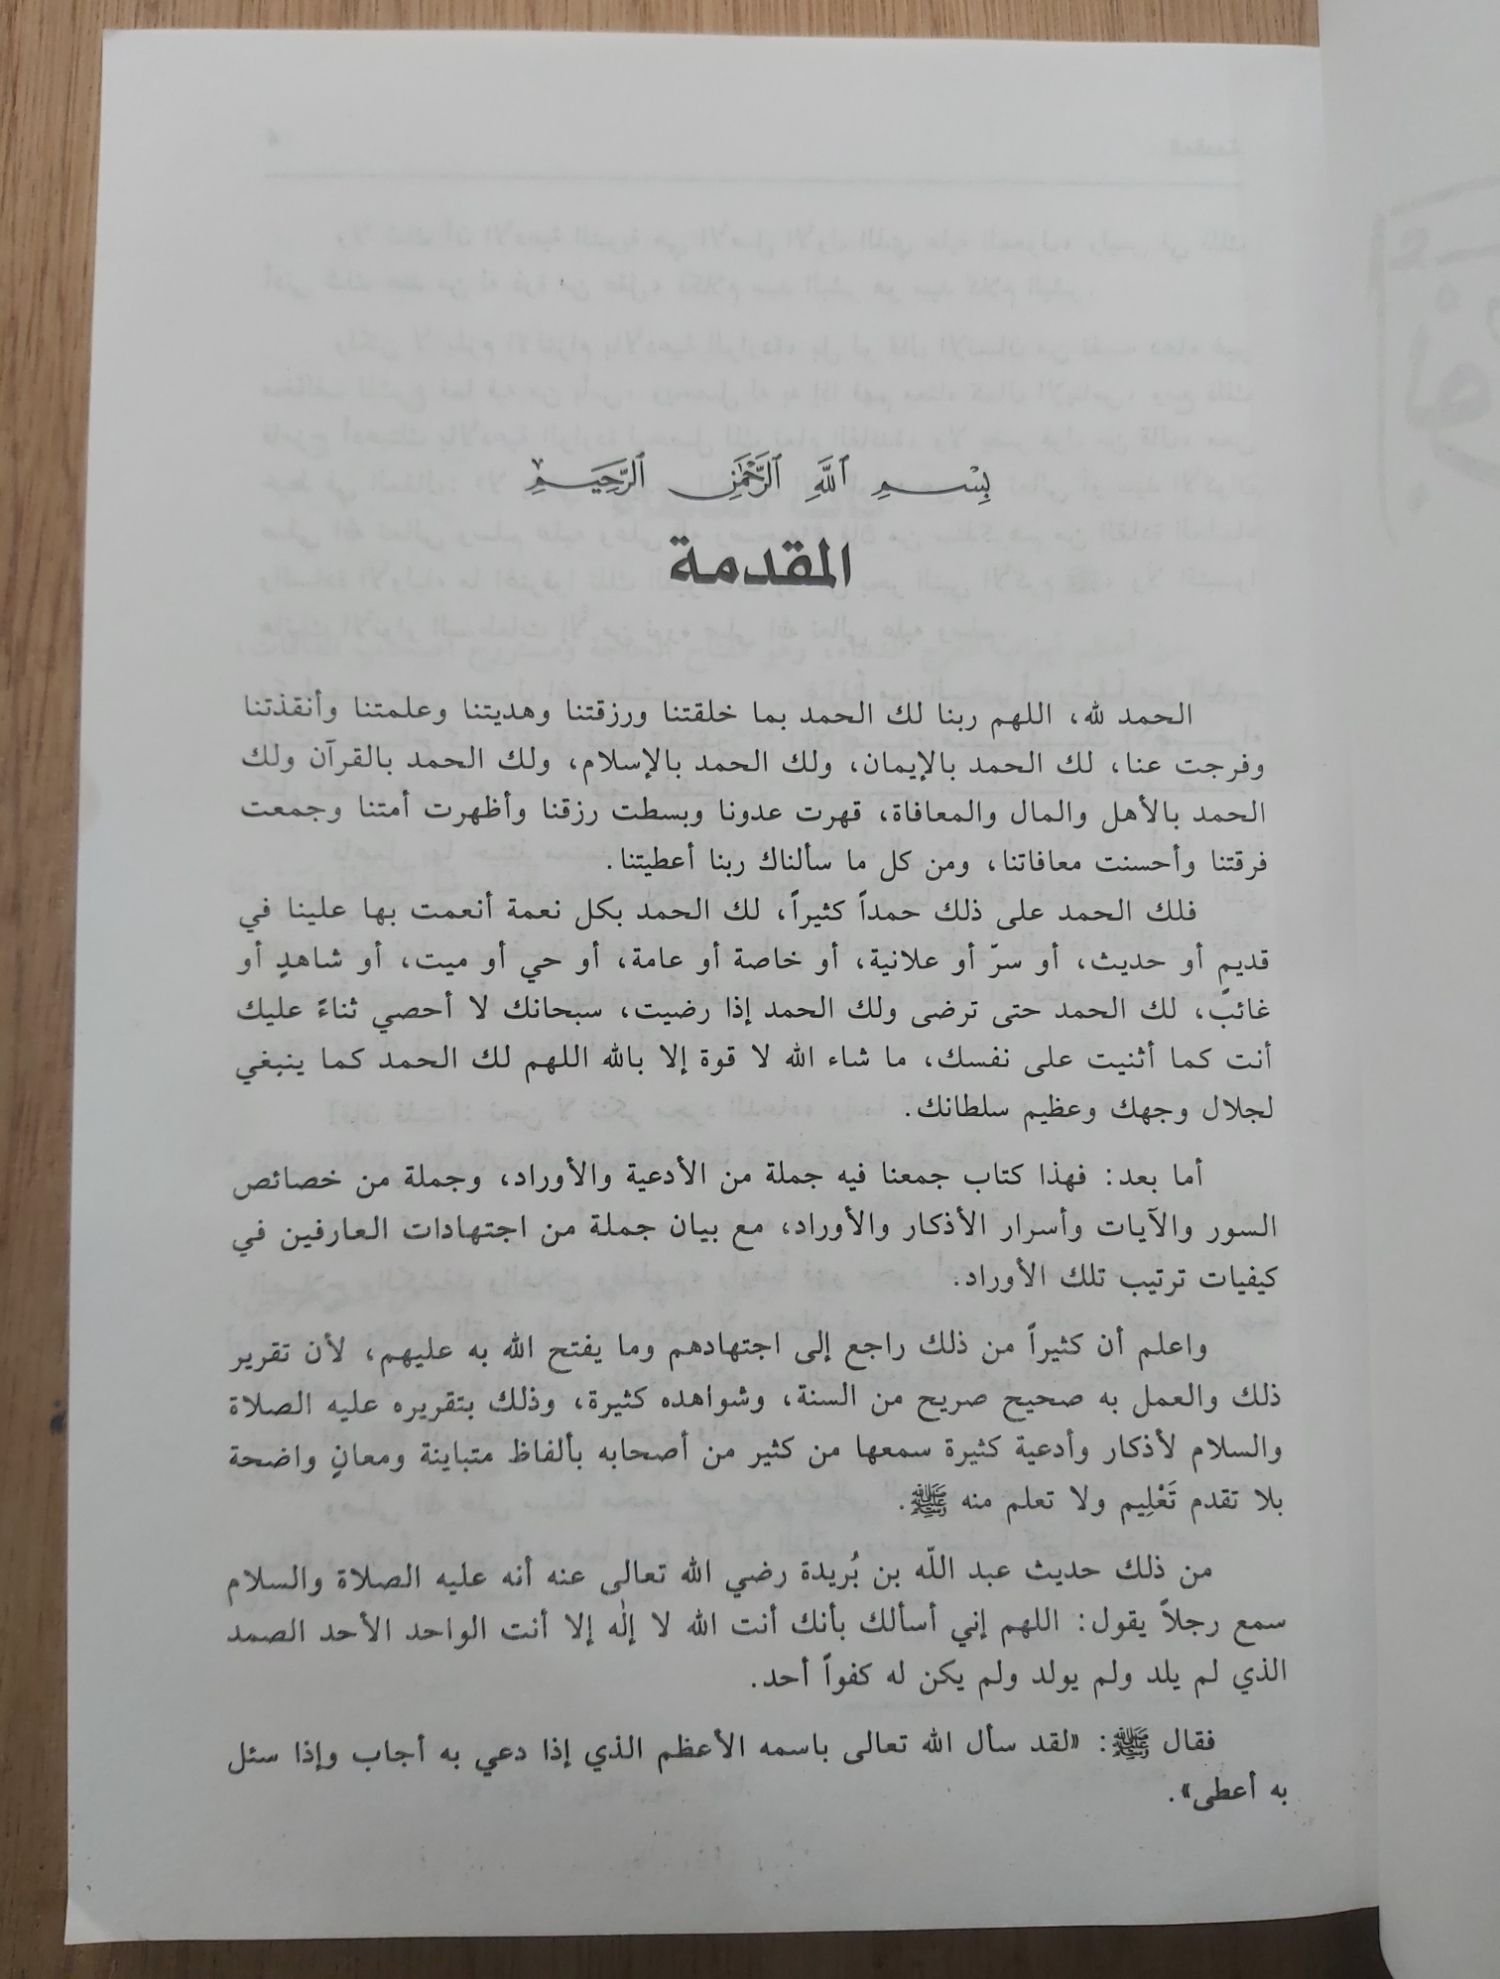 بِسْمِ ٱللَّهِ ٱلرَّحْمَٰنِ ٱلرَّحِيمِ
المقدمة
الحمد لله، اللهم ربنا لك الحمد بما خلقتنا ورزقتنا وهديتنا وعلمتنا وأنقذتنا
وفرجت عنا، لك الحمد بالإيمان، ولك الحمد بالإسلام، ولك الحمد بالقرآن ولك
الحمد بالأهل والمال والمعافاة، قهرت عدونا وبسطت رزقنا وأظهرت أمتنا وجمعت
فرقتنا وأحسنت معافاتنا، ومن كل ما سألناك ربنا أعطيتنا.
فلك الحمد على ذلك حمداً كثيراً، لك الحمد بكل نعمة أنعمت بها علينا في
قديمٍ أو حديث، أو سرّ أو علانية، أو خاصة أو عامة، أو حي أو ميت، أو شاهدٍ أو
غائبٍ، لك الحمد حتى ترضى ولك الحمد إذا رضيت، سبحانك لا أحصي ثناءً عليك
أنت كما أثنيت على نفسك، ما شاء الله لا قوة إلا بالله اللهم لك الحمد كما ينبغي
لجلال وجهك وعظيم سلطانك.
أما بعد: فهذا كتاب جمعنا فيه جملة من الأدعية والأوراد، وجملة من خصائص
السور والآيات وأسرار الأذكار والأوراد، مع بيان جملة من اجتهادات العارفين في
كيفيات ترتيب تلك الأوراد.
واعلم أن كثيراً من ذلك راجع إلى اجتهادهم وما يفتح الله به عليهم، لأن تقرير
ذلك والعمل به صحيح صريح من السنة، وشواهده كثيرة، وذلك بتقريره عليه الصلاة
والسلام لأذكار وأدعية كثيرة سمعها من كثير من أصحابه بألفاظ متباينة ومعانٍ واضحة
بلا تقدم تَعْلِيم ولا تعلم منه ﷺ.
من ذلك حديث عبد اللّه بن بُريدة رضي الله تعالى عنه أنه عليه الصلاة والسلام
سمع رجلاً يقول: اللهم إني أسألك بأنك أنت الله لا إلٰه إلا أنت الواحد الأحد الصمد
الذي لم يلد ولم يولد ولم يكن له كفواً أحد.
فقال ﷺ: «لقد سأل الله تعالى باسمه الأعظم الذي إذا دعي به أجاب وإذا سئل
به أعطى».